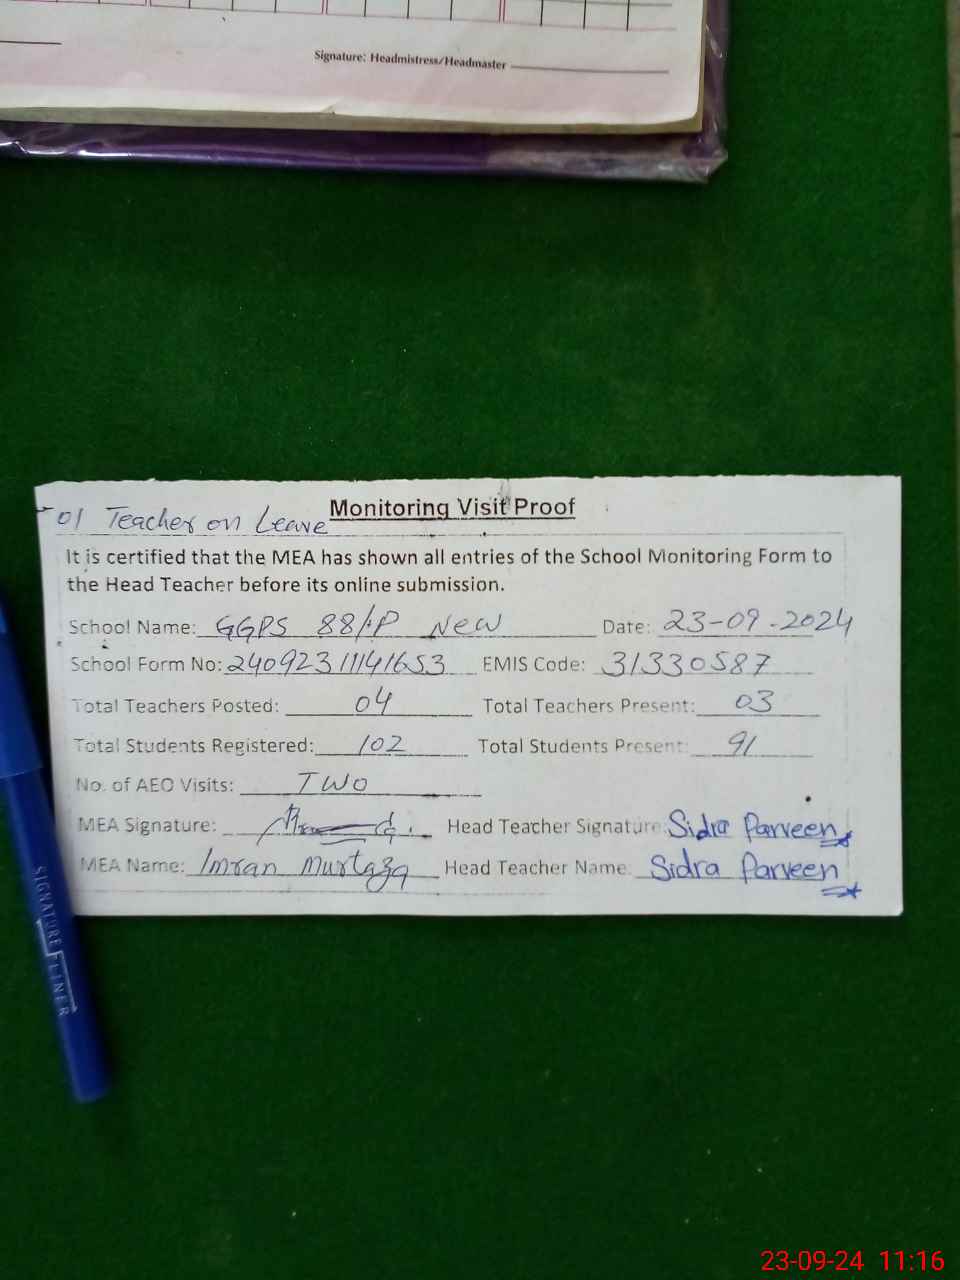 Signature: Headmistress/Headmaster
Monitoring Visit Proof
01 Teacher on Leave
It is certified that the MEA has shown all entries of the School Monitoring Form to
the Head Teacher before its online submission.
School Name: GGPS 88/P New Date: 23-09-2024
School Form No: 24092311141653 EMIS Code: 31330587
Total Teachers Posted: 04 Total Teachers Present: 03
Total Students Registered: 102 Total Students Present: 91
No. of AEO Visits: Two
MEA Signature: Head Teacher Signature: Sidra Parveen
MEA Name: Imran Murtaza Head Teacher Name: Sidra Parveen
SIGNATURE LINER
23-09-24 11:16